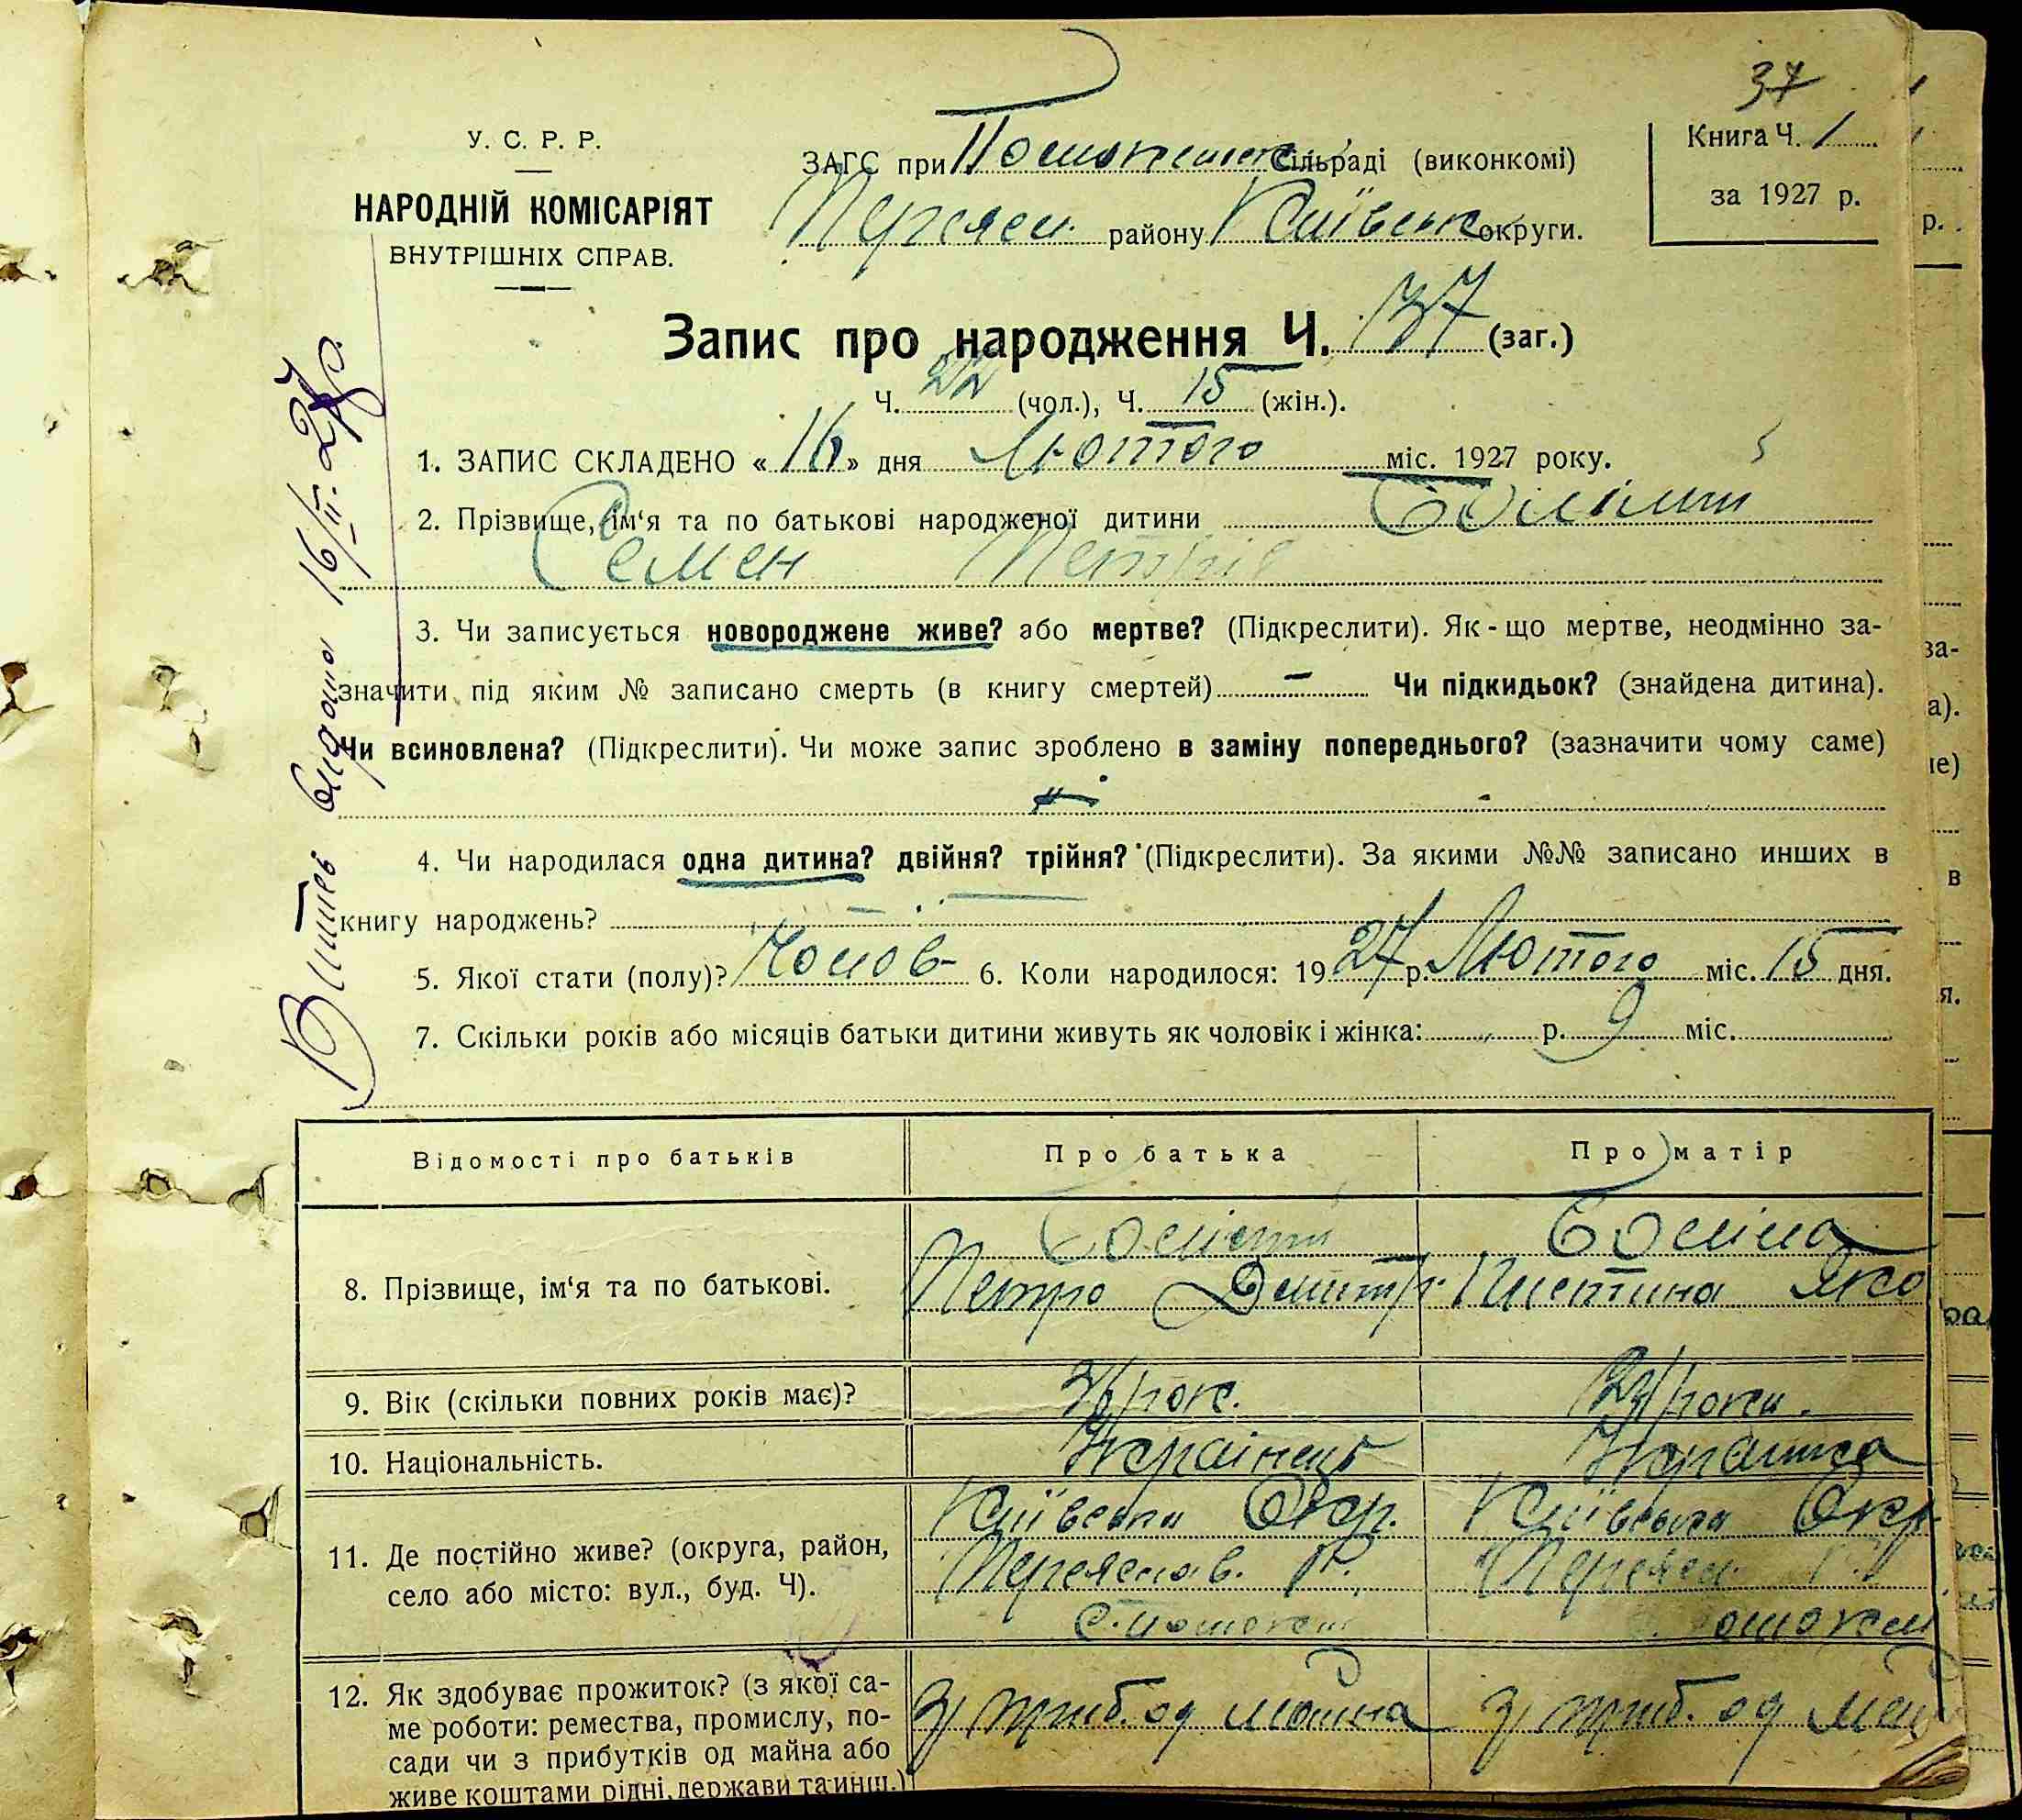 37
У. С. Р. Р.
НАРОДНІЙ КОМІСАРІЯТ
ВНУТРІШНІХ СПРАВ.
ЗАГС при сільраді (виконкомі)
Переясл. району Київськ округи.
Книга Ч. 1
за 1927 р.
Запис про народження Ч. 37 (заг.)
Ч. 22 (чол.), Ч. 15 (жін.).
1. ЗАПИС СКЛАДЕНО « 16 » дня Лютого міс. 1927 року.
2. Прізвище, ім‘я та по батькові народженої дитини
Семен Петрів
3. Чи записується новороджене живе? або мертве? (Підкреслити). Як-що мертве, неодмінно за-
значити під яким № записано смерть (в книгу смертей) – Чи підкидьок? (знайдена дитина).
Чи всиновлена? (Підкреслити). Чи може запис зроблено в заміну попереднього? (зазначити чому саме)
4. Чи народилася одна дитина? двійня? трійня? (Підкреслити). За якими №№ записано инших в
книгу народжень?
5. Якої стати (полу)? Чолов 6. Коли народилося: 1927 р. Лютого міс. 15 дня.
7. Скільки років або місяців батьки дитини живуть як чоловік і жінка: „ р. 9 міс.
Витяг видано 16/II. 27 р.
Відомості про батьків
Про батька
Про матір
8. Прізвище, ім‘я та по батькові.
Петро Дмитр.
Яко
9. Вік (скільки повних років має)?
рок.
роки.
10. Національність.
Українець
Українка
11. Де постійно живе? (округа, район,
село або місто: вул., буд. Ч).
Київська Окр.
Переяслав. Р.
с.
Київська Окр.
Переясл. Р.
12. Як здобуває прожиток? (з якої са-
ме роботи: ремества, промислу, по-
сади чи з прибутків од майна або
живе коштами рідні, держави та инш.)
З приб. од майна
З приб. од май